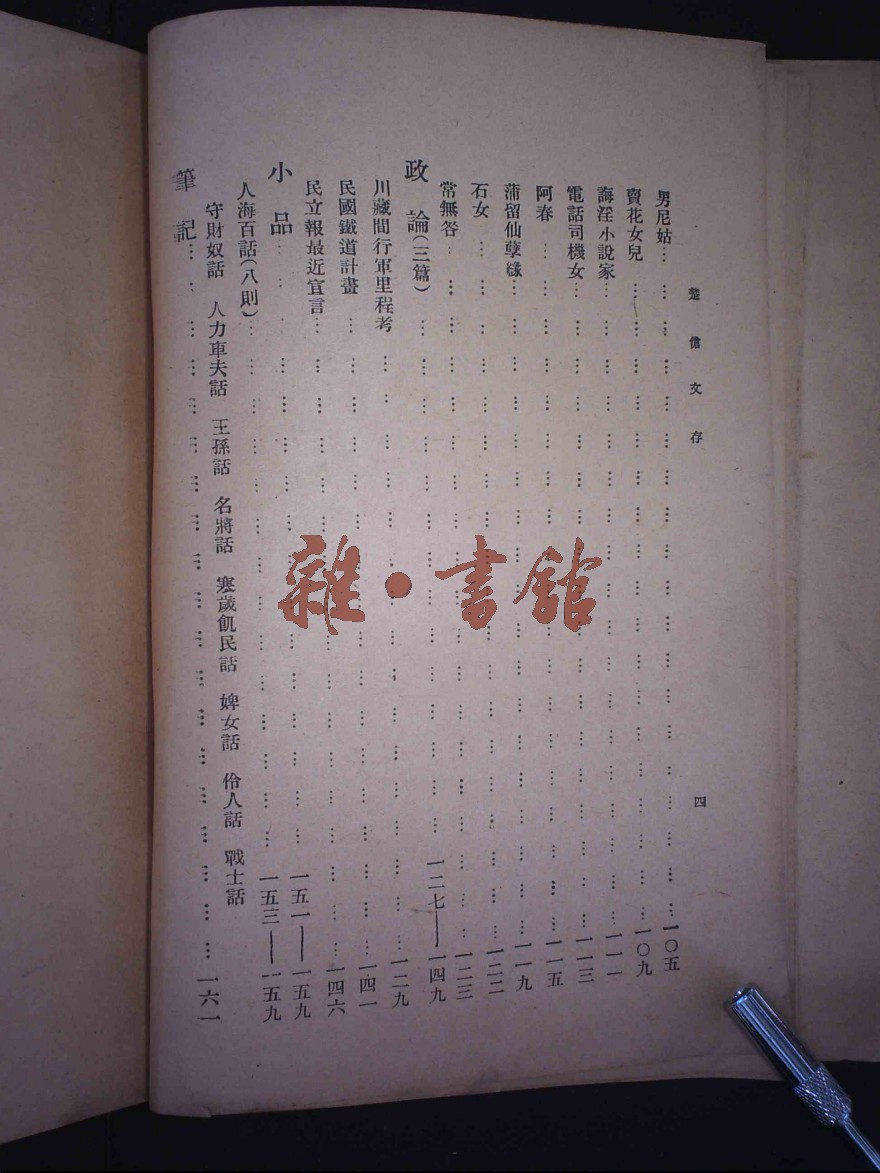 楚傖文存
四
男尼姑…………一〇五
賣花女兒…………一〇九
誨淫小說家…………一一一
電話司機女…………一一三
阿春…………一一五
蒲留仙孽緣…………一一九
石女…………一二二
常無咎…………一二三
政論(三篇)…………一二七——一四九
川藏間行軍里程考…………一二九
民國鐵道計畫…………一四一
民立報最近宣言…………一四六
小品…………一五一——一五九
人海百話(八則)…………一五三——一五九
守財奴話 人力車夫話 王孫話 名將話 寒歲飢民話 婢女話 伶人話 戰士話
筆記…………一六一
雜·書館